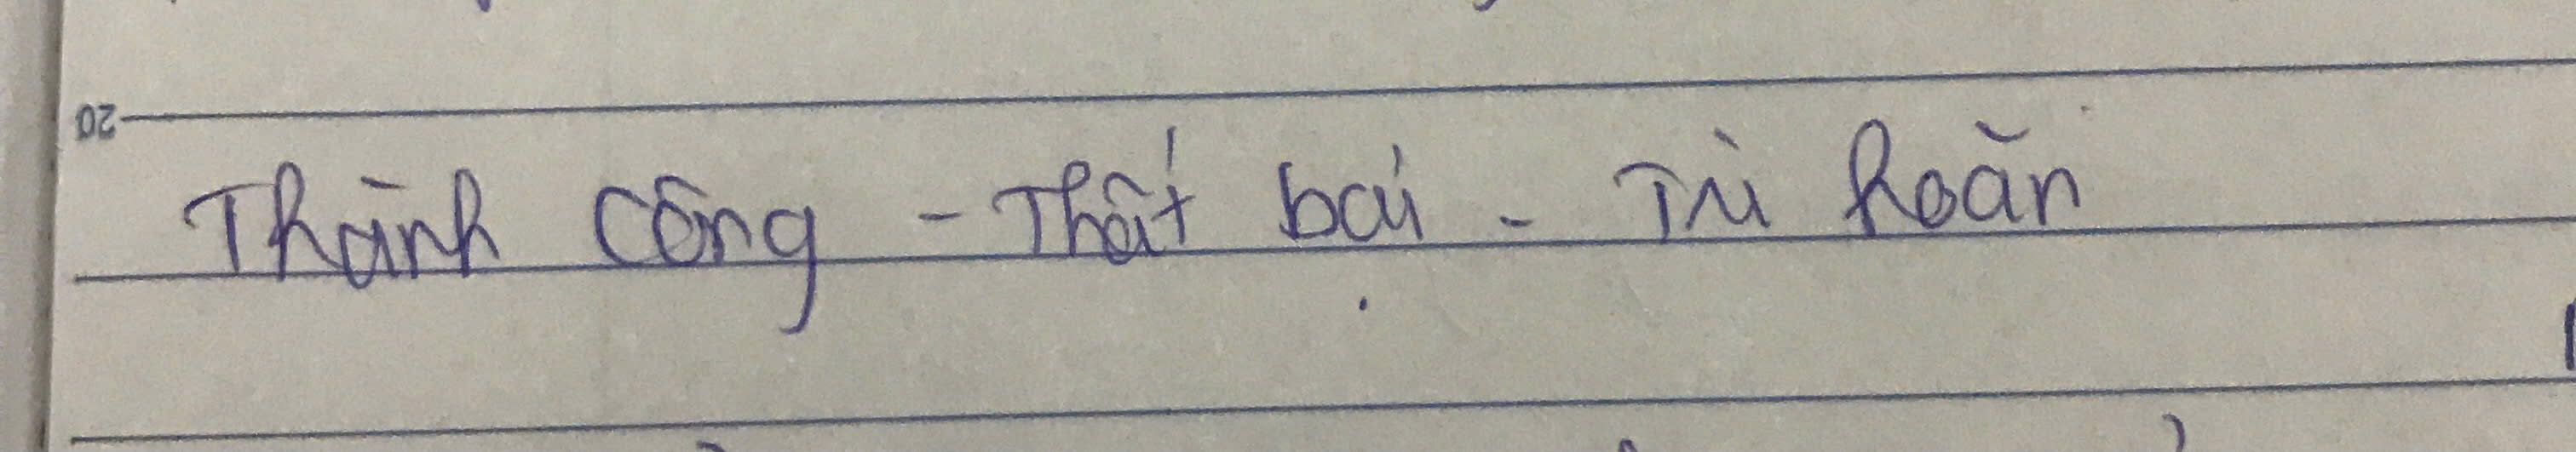 20
Thành công - Thất bại - Trì hoãn